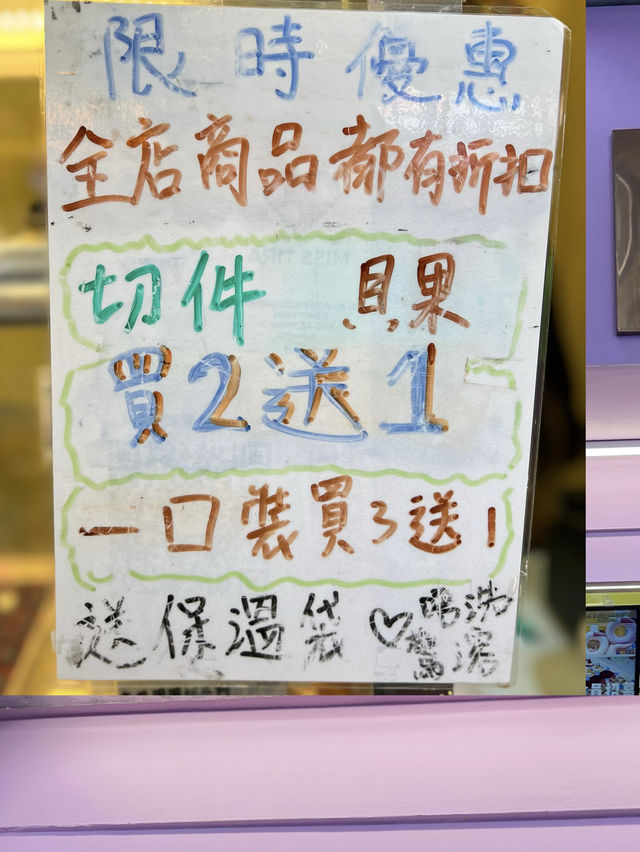 限時優惠
全店商品都有折扣
切件 貝果
買2送1
一口裝買3送1
送保溫袋♡唔洗
驚溶